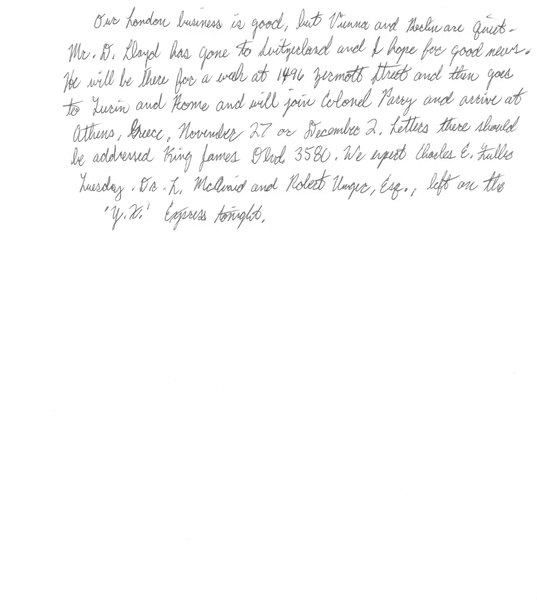 Our London business is good, but Vienna and Berlin are quiet -
Mr. D. Lloyd has gone to Switzerland and I hope for good news.
He will be there for a week at 1496 Zermott Street and then goes
to Turin and Rome and will join Colonel Parry and arrive at
Athens, Greece, November 27 or December 2. Letters there should
be addressed King James Blvd 3580. We expect Charles E. Fuller
Tuesday. Dr. L. McQuaid and Robert Unger, Esq., left on the
"Y.X." Express tonight.